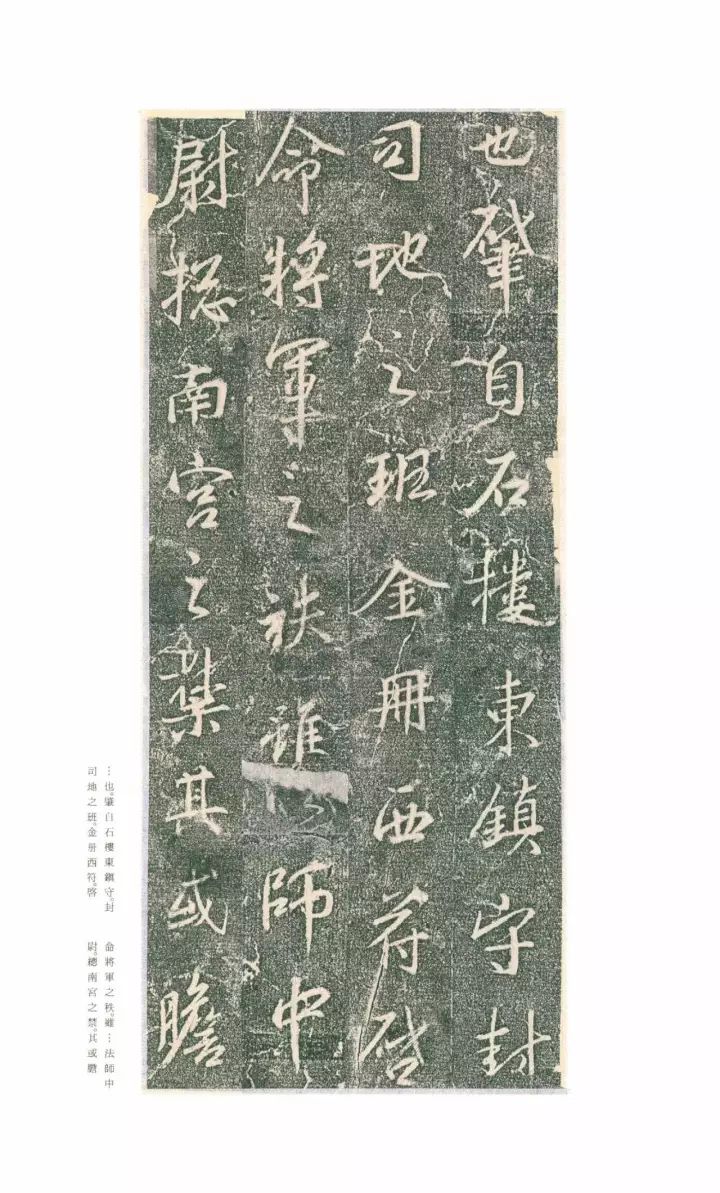 也肇自石樓東鎮守封
司地之班金冊西符啓
命將軍之秩雖師中
尉揔南宮之禁其或膽
…也。肇自石樓東鎮守。封
司地之班。金册西符。啓
命將軍之秩。雖…法師中
尉。總南宮之禁。其或膽